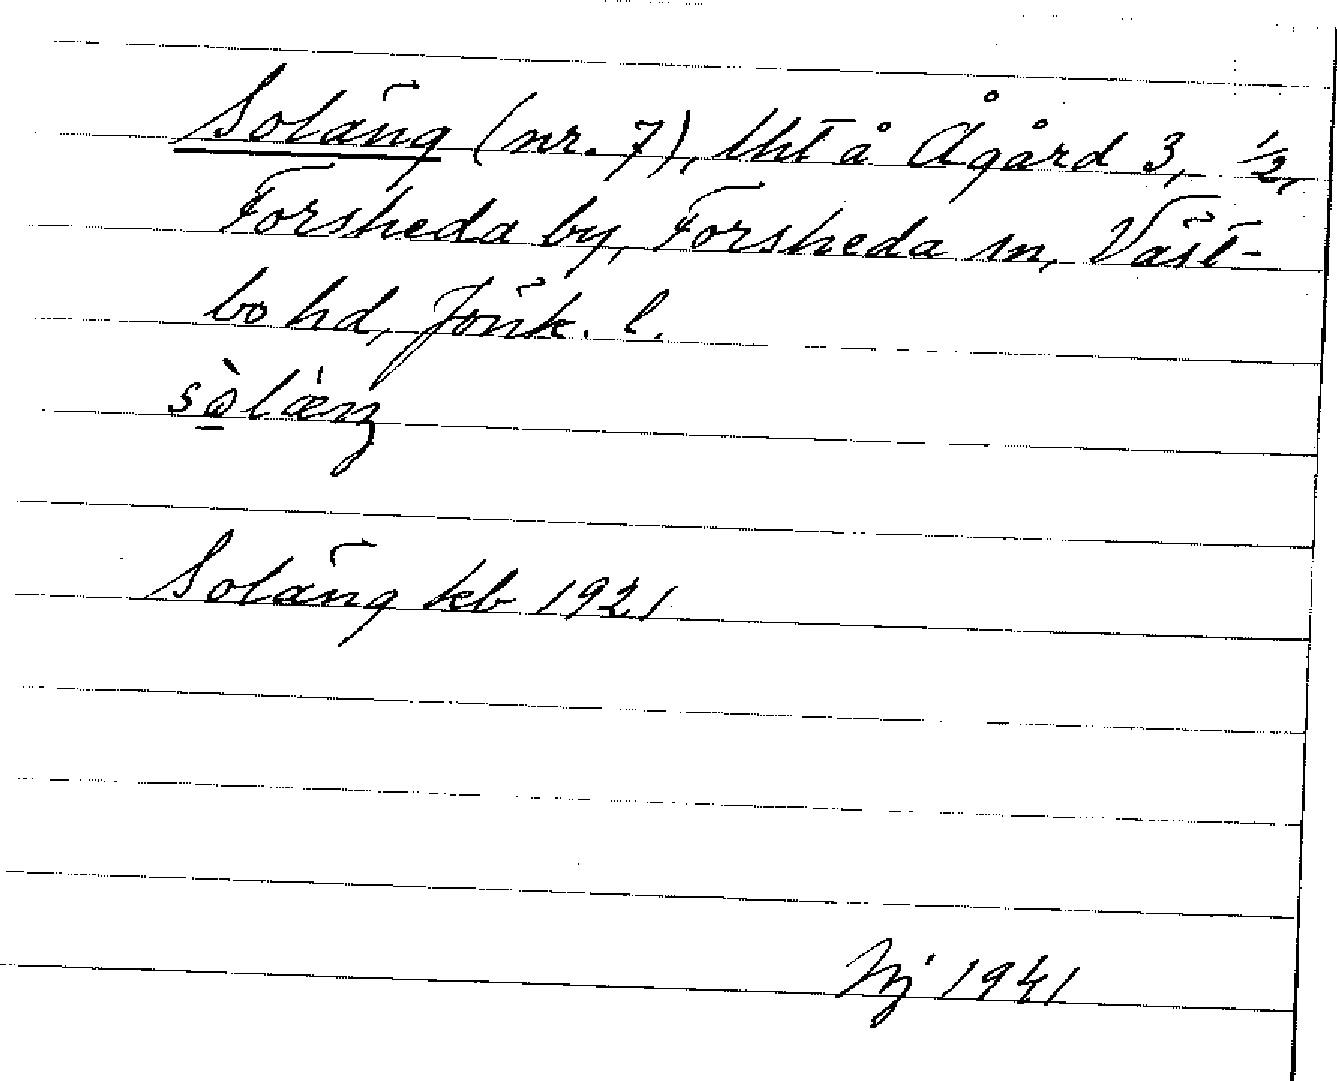 Soläng (nr. 7), lht å Ågård 3, 1/2,
Forsheda by, Forsheda sn, Väst-
bo hd, Jönk. l.
sòlæ̀ŋ
Soläng kb 1921
1941